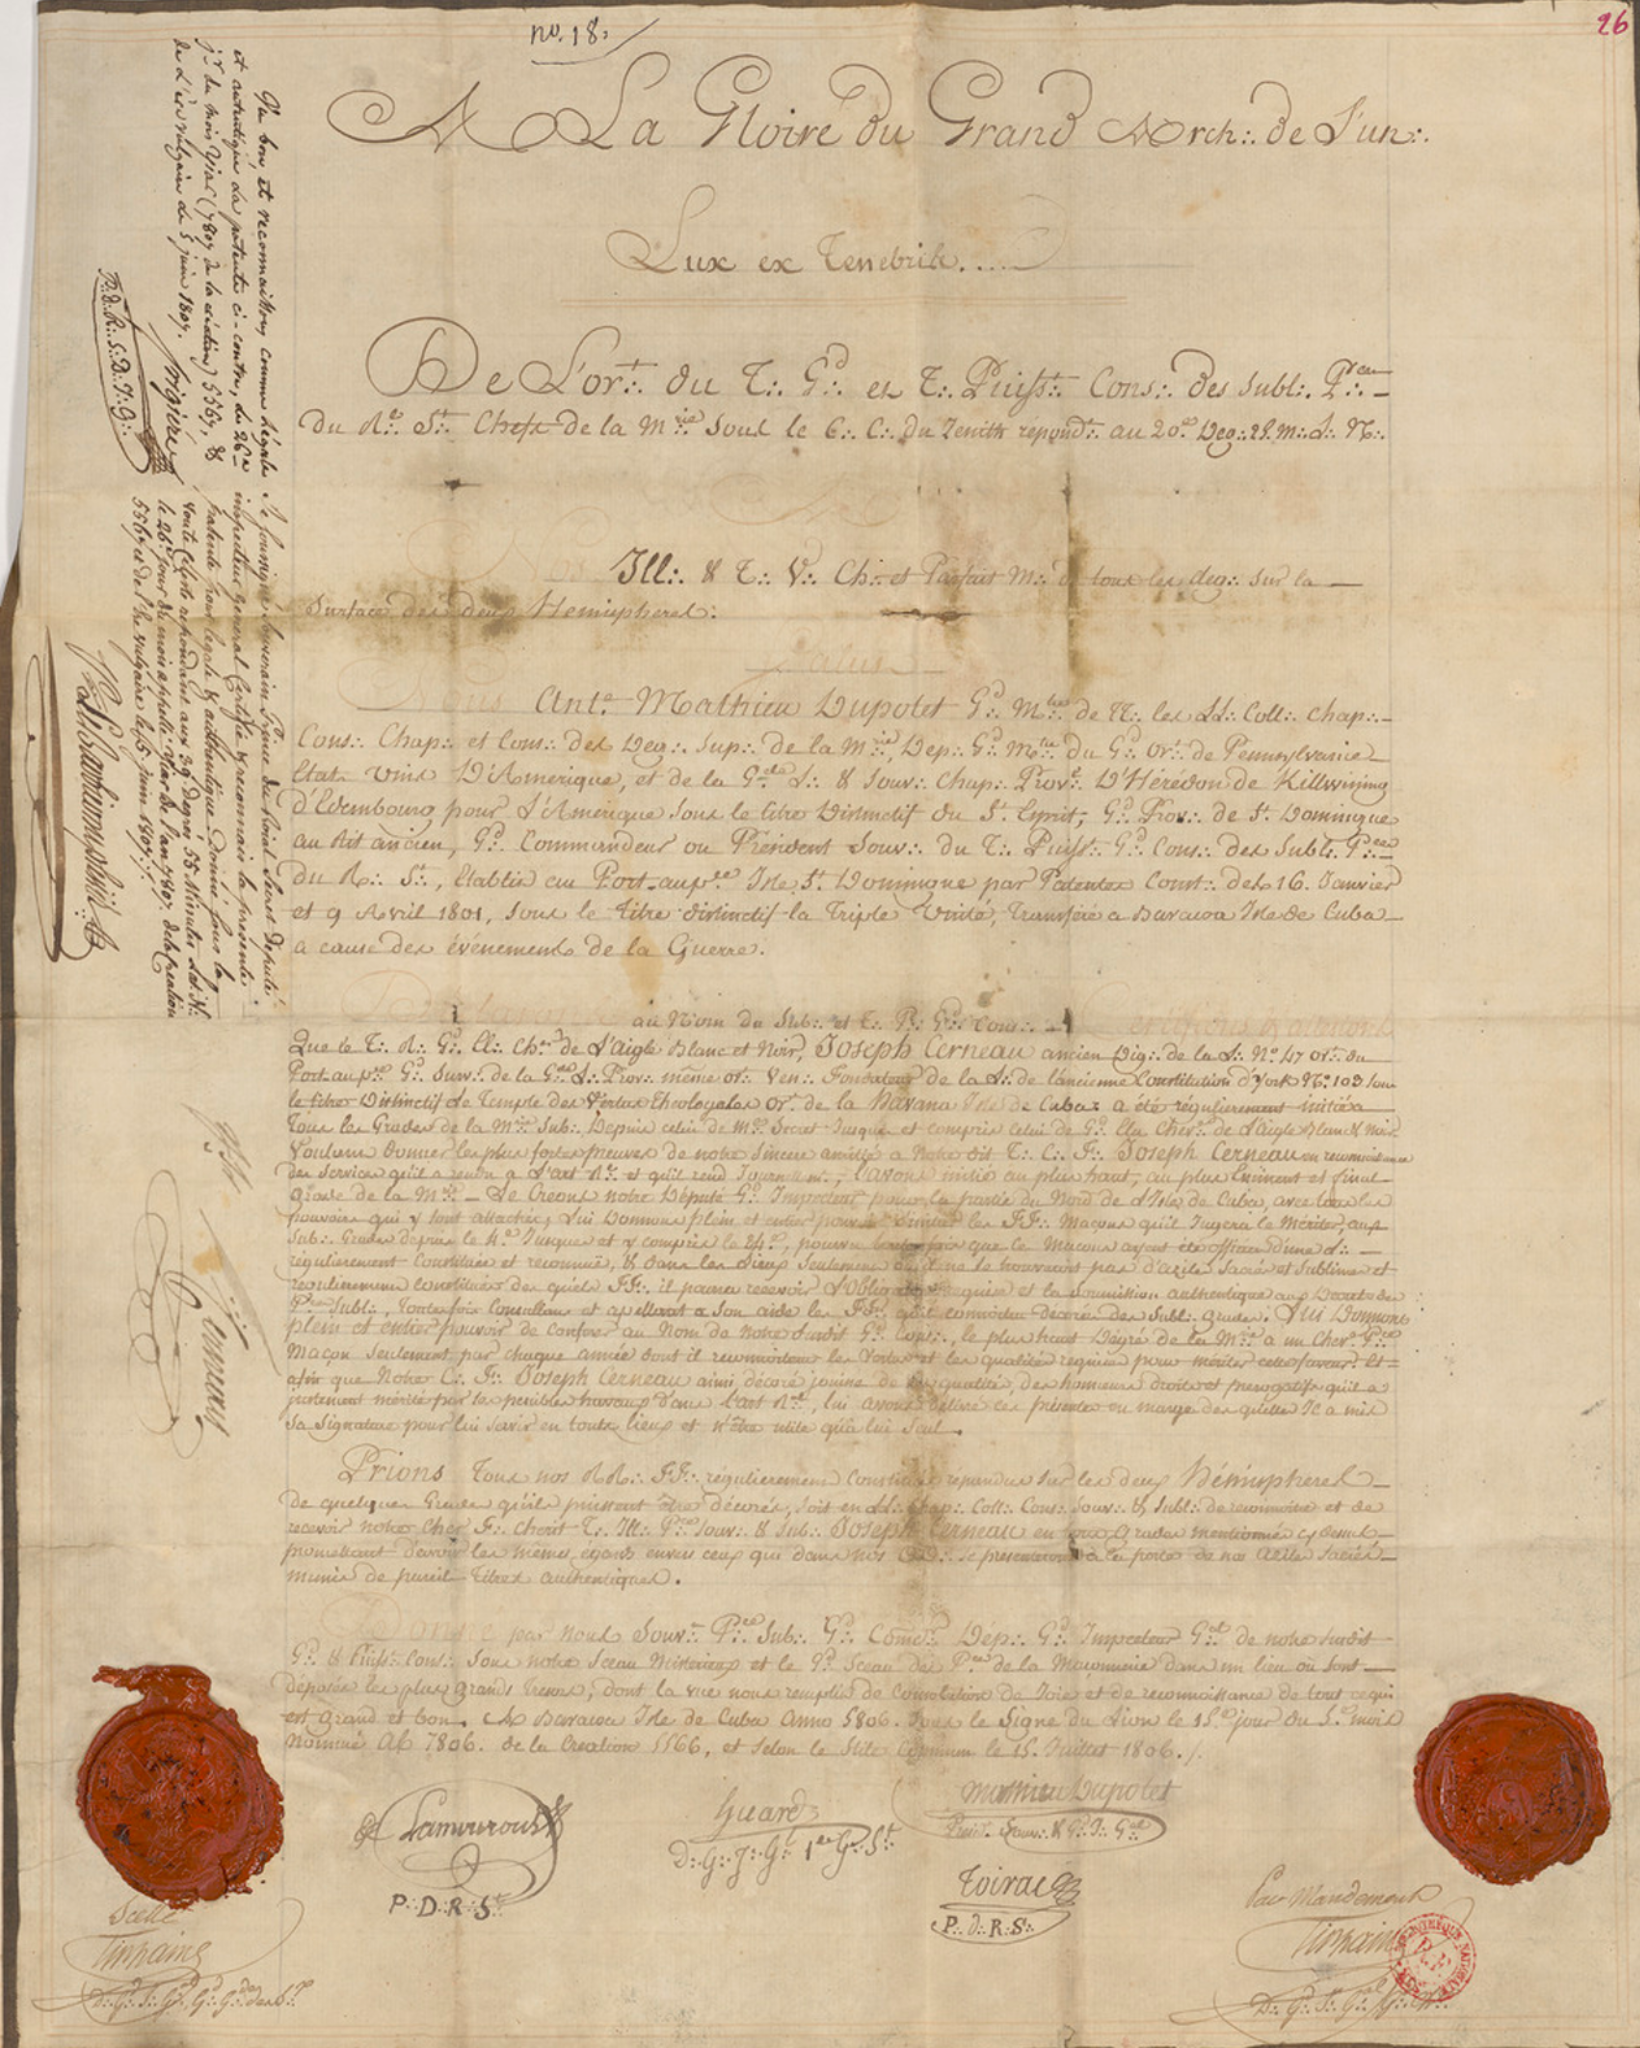 no. 18.
26
A La Gloire du Grand Arch∴ de L'un∴
Lux ex Tenebris....
De L'or∴ du T∴ Gd∴ et T∴ Puisst∴ Cons∴ des Subl∴ Pces∴
du Rl∴ St∴ Chefs de la Mie∴ Sous le C∴ C∴ du Zenith répondt∴ au 20e Deg∴ 25 M∴ L∴ N∴
Ill∴ & T∴ V∴ Ch∴ et Parfait M∴ de tous les deg∴ sur la
Surface des deux Hemispheres∴
Salut
Nous Ante Mathieu Dupotet Gd∴ Mtre∴ de Tt∴ les LL∴ Coll∴ Chap∴
Cons∴ Chap∴ et Cons∴ des Deg∴ Sup∴ de la Mie∴, Dep∴ Gd∴ Mtre∴ du Gd∴ Ort∴ de Pennsylvanie
Etats unis D'Amerique, et de la Gde∴ L∴ & Souv∴ Chap∴ Provl∴ D'Hérédon de Killwining
d'Edembourg pour L'Amérique sous le titre Distinctif du St. Esprit, Gd∴ Prov∴ de St. Domingue
au Rit ancien, Gd∴ Commandeur ou Président Souv∴ du T∴ Puisst∴ Gd∴ Cons∴ des Subls∴ Pces∴
du R∴ St∴, Etablis au Port-au-pce Isle St. Domingue par Patentes Const∴ des 16. Janvier
et 9 Avril 1801, sous le titre distinctif la Triple Unité, Transféré a Baracoa Isle de Cuba
a cause des événements de la Guerre.
au Nom du Sub∴ et T∴ P∴ Gd∴ Cons∴ Certifions & attestons
Que le T∴ R∴ Gd∴ El∴ Cher∴ de L'Aigle Blanc et Noir, Joseph Cerneau ancien Dig∴ de la L∴ No 47 Ort∴ du
Port-au-pce Gd∴ Surv∴ de la Gde∴ L∴ Prov∴ même or∴ Ven∴ Fondateur de la L∴ de l'ancienne Constitution d'York No 103 sous
le titre Distinctif de Temple des Vertus Theologales Ort∴ de la Havana Isle de Cuba a été régulierement initié a
Tous les Grades de la Mie∴ Sub∴ Depuis celui de Me Secret Jusques et compris celui de Gd∴ Elu Cher∴ de L'Aigle Blanc & Noir
Voulant donner les plus fortes preuves de notre sincere amitié a Notre dit T∴ C∴ F∴ Joseph Cerneau en reconnoissance
des services qu'il a rendu a L'art Rl∴ et qu'il rend Journellemt∴, L'avons initié au plus haut, au plus Eminent et final
Grade de la Mie∴ Le Creons notre Député Gd∴ Inspecteur pour la partie du Nord de L'Isle de Cuba, avec tous les
pouvoirs qui y sont attachés, Lui Donnons plein et entier pouvoir d'initier les FF∴ Maçons qu'il Jugera le Mériter, aux
Sub∴ Grades depuis le 4e Jusques et y compris le 24e, pourvu toutefois que ce Maçons ayent été officiers d'une L∴
régulierement Constituée et reconnuë, & dans les Lieux seulement où il ne se trouveroit pas d'azile Sacré et Sublimes et
régulierement constitués desquels FF∴ il pourra recevoir L'Obligation requise et la soumission authentique aux Decrets des
Pces∴ Subl∴, Toutefois Consultant et apellant a son aide les FF∴ qu'il connoitra décorés des Subl∴ grades. Lui Donnons
plein et entier pouvoir de conferer au Nom de Notre Susdit Gd∴ Cons∴, le plus haut Degré de la Mie∴ a un Cher∴ Pce
Maçon seulement par chaque année dont il reconnoitra les vertus et les qualités requises pour mériter cette faveur. Et
afin que Notre C∴ F∴ Joseph Cerneau ainsi décoré jouisse de sa qualité, des honneurs droits et prerogatifs qu'il a
justement mérité par ses penibles travaux dans l'art Rl∴, lui avons délivré ces présentes en marge desquelles Il a mis
sa Signature pour lui servir en tous lieux et n'être utile qu'a lui seul.
Prions Tous nos RR∴ FF∴ régulierement Constitués répandus sur les deux Hémispheres
de quelques Grades qu'ils puissent être décorés, soit en LL∴ Chap∴ Coll∴ Cons∴ Souv∴ & Subl∴ de reconnoitre et de
recevoir notre Cher F∴ cherit T∴ Ill∴ Pce∴ Souv∴ & Sub∴ Joseph Cerneau en tous Grades mentionnés cy dessus
promettant d'avoir les mêmes égards envers ceux qui dans nos se presenteront à la porte de nos aziles sacrés
munis de pareils titres authentiques.
Donné par Nous Souvn∴ Pce∴ Sub∴ Gd∴ Comdr∴ Dep∴ Gd∴ Inspecteur Gal∴ de notre susdit
Gd∴ & Puisst∴ Cons∴ sous notre Sceau Misterieux et le Gd∴ Sceau des Pces∴ de la Maçonnerie dans un lieu où sont
déposés les plus grands tresors, dont la vue nous remplit de Consolation de Joie et de reconnoissance de tout ce qui
est grand et bon. A Baracoa Isle de Cuba Anno 5806. Sous le Signe du Lion le 15e jour du 5e mois
Nommé Ab 7806. de la Creation 5566, et selon le Stile Commun le 15. Juillet 1806.
Lamouroux
P∴D∴R∴St
Huard
D∴G∴J∴Gl∴ 1er Gd∴ St∴
Mathieu Dupotet
Souv∴ & Gd∴ I∴ Gal
Toirac
P∴d∴R∴S∴
Scellé
Par Mandement
Vu bon, et reconnaitons comme Légale
et autentique la patente ci-contre, du 26me
jr du mois Yjar (7807 de la création) 5567, &
de L'ère vulgaire le 5 juin 1807.
P∴d∴R∴S∴D∴J∴G∴
Je soussigné, Souverain Prince du Roial Secret député
inspecteur general Certifie & reconnais la présente
patente pour légale & authentique Donné sous la
voute Celeste répondant aux 29 Degrés 55 Minutes Lat. N∴
le 26e jour du mois appellé Yiar de l'an 7807 de la création
5567 et de l'Ere vulgaire le 5 juin 1807∴
J. Cerneau